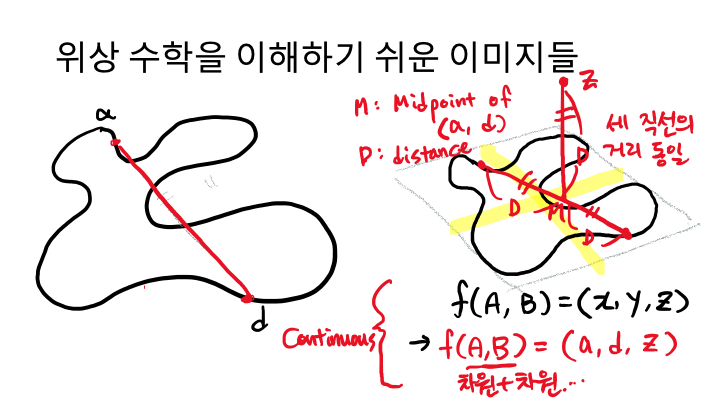 위상 수학을 이해하기 쉬운 이미지들
a
d
M: Midpoint of
(a, d)
D: distance
Z
세 직선의
거리 동일
D
D
M
D
f(A, B) = (x, y, z)
Continuous
→ f(A,B) = (a, d, z)
차원+차원...